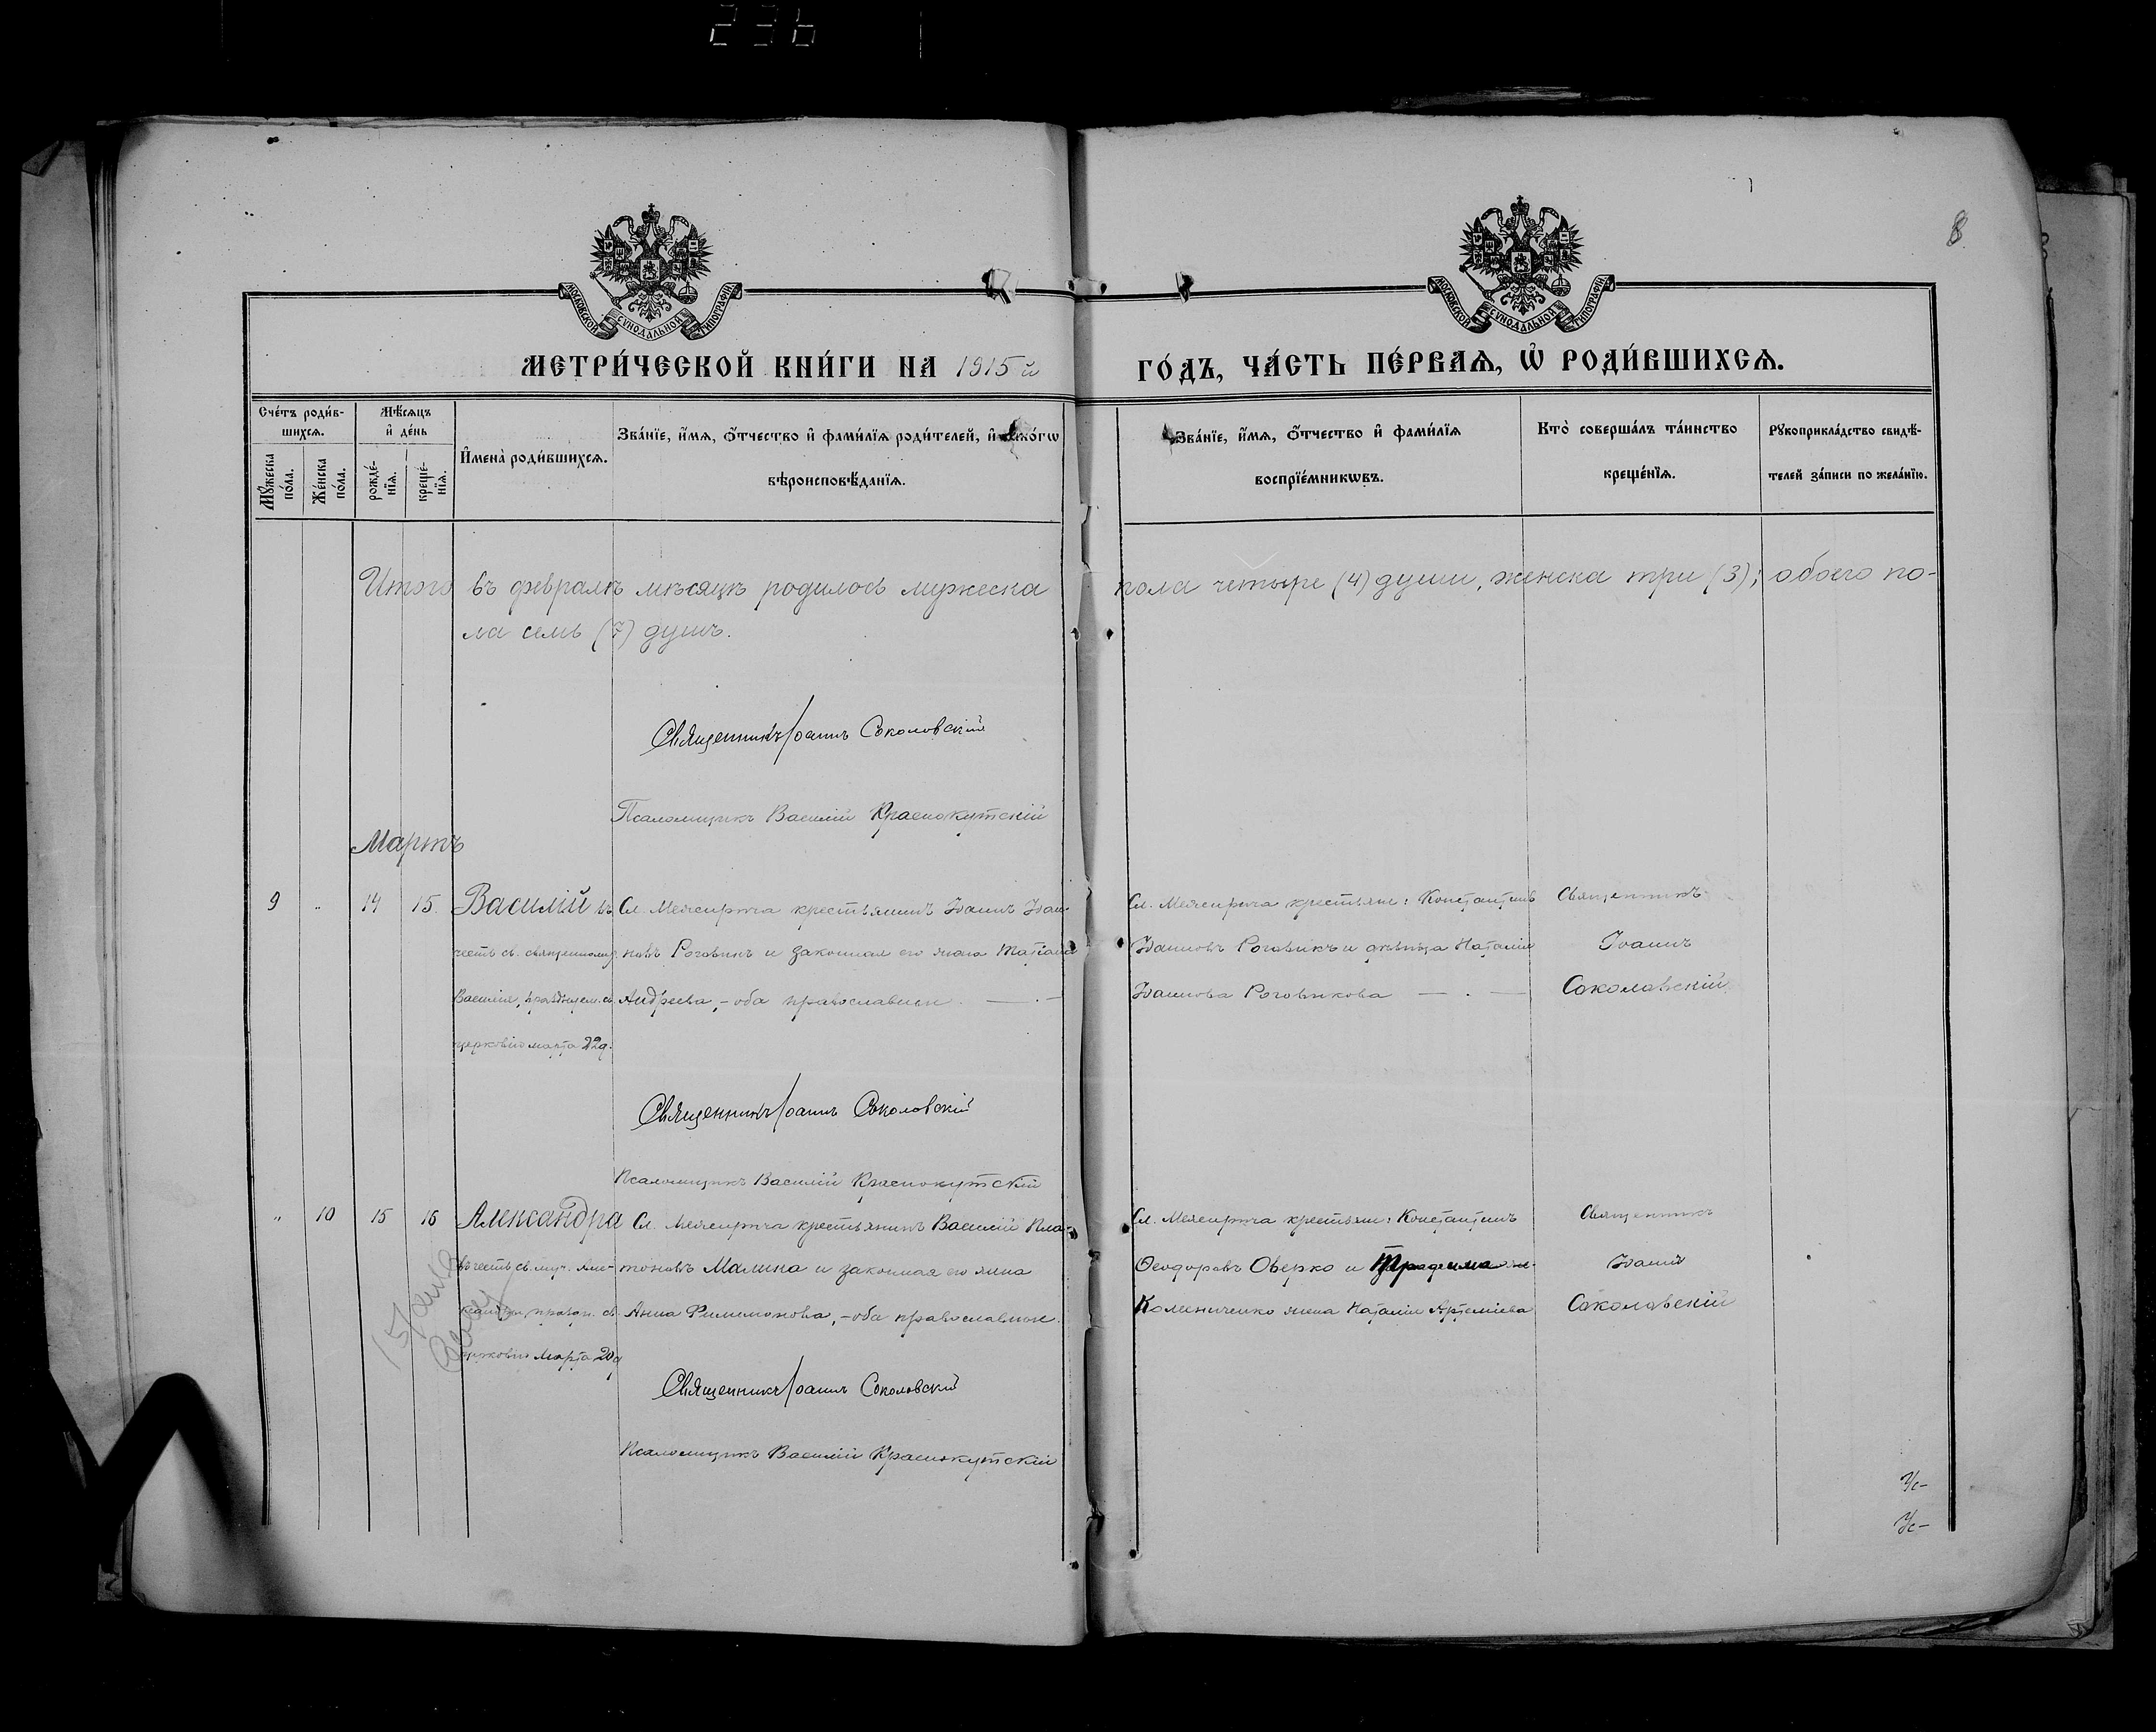 236
8
МОСКОВСКОЙ СѴНОДАЛЬНОЙ ТИПОГРАФІИ
МОСКОВСКОЙ СѴНОДАЛЬНОЙ ТИПОГРАФІИ
МЕТРИ́ЧЕСКОЙ КНИ́ГИ НА 1915 й
ГО́ДЪ, ЧА́СТЬ ПЕ́РВАѦ, Ѡ҆ РОДИ́ВШИХСѦ.
Сче́тъ роди́в-
шихсѧ.
Мꙋ́жеска
по́ла.
Же́нска
по́ла.
Мѣ́сѧцъ
и҆ де́нь
рожде́-
нїѧ.
креще́-
нїѧ.
И҆мена̀ роди́вшихсѧ.
Зва́нїе, и҆́мѧ, ѻ҆́тчество и҆ фами́лїѧ роди́телей, и҆
вѣроисповѣ́данїѧ.
Зва́нїе, и҆́мѧ, ѻ҆́тчество и҆ фами́лїѧ
воспрїе́мникѡвъ.
Кто̀ соверша́лъ та́инство
креще́нїѧ.
Рꙋкоприкла́дство свидѣ́-
телей за́писи по жела́нїю.
Итого въ февралѣ мѣсяцѣ родилось мужеска
пола четыре (4) души, женска три (3); обоего по-
ла семь (7) душъ.
Священникъ Іоаннъ Соколовскій
Псаломщикъ Василій Краснокутскій
Мартъ
9 " 14 15. Василій въ
честь св. священномуч.
Василія, празднуем. св.
церковію марта 22 д.
Сл. Межирича крестьянинъ Іоаннъ Іоан-
новъ Роговикъ и законная его жена Татіана
Андреева, - оба православные.
Сл. Межирича крестьяне: Константинъ
Іоанновъ Роговикъ и дѣвица Наталія
Іоаннова Роговикова
Священникъ
Іоаннъ
Соколовскій
Священникъ Іоаннъ Соколовскій
Псаломщикъ Василій Краснокутскій
" 10 15 16 Александра
въ честь св. муч. Але-
ксандры, праздн. св.
церковію Марта 20 д
Сл. Межирича крестьянинъ Василій Пла-
тоновъ Малина и законная его жена
Анна Филимонова, - оба православные.
Сл. Межирича крестьяне: Константинъ
Ѳеодоровъ Оверко и
Колиниченко жена Наталія Артеміева
Священникъ
Іоаннъ
Соколовскій
Священникъ Іоаннъ Соколовскій
Псаломщикъ Василій Краснокутскій